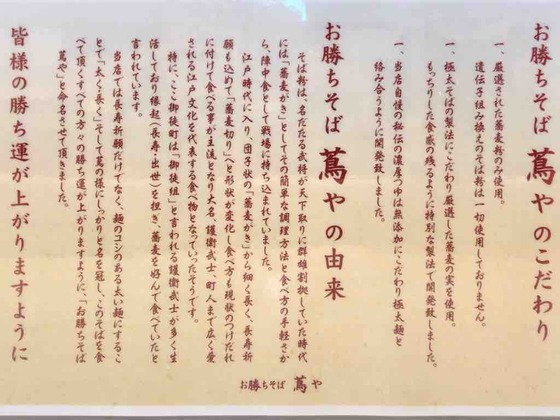 お勝ちそば 蔦やのこだわり
一、厳選された蕎麦粉のみ使用。
遺伝子組み換えのそば粉は一切使用しておりません。
一、極太そばの製法にこだわり厳選した蕎麦の実を使用。
もっちりした食感の残るように特別な製法で開発致しました。
一、当店自慢の秘伝の濃厚つゆは無添加にこだわり極太麺と
絡み合うように開発致しました。
お勝ちそば 蔦やの由来
そば粉は、名だたる武将が天下取りに群雄割拠していた時代
には「蕎麦がき」としてその簡単な調理方法と食べ方の手軽さか
ら、陣中食として戦場に持ち込まれていました。
江戸時代に入り、団子状の「蕎麦がき」から細く長く、長寿祈
願も込めて「蕎麦切り」へと形状が変化し食べ方も現状のつけだれ
に付けて食べる事が主流となり大名、護衛武士、町人まで広く愛
される江戸文化を代表する食べ物となっていったそうです。
特に、ここ御徒町は「御徒組」と言われる護衛武士が多く生
活しており縁起(長寿・出世)を担ぎ、蕎麦を好んで食べていたと
言われています。
当店では長寿祈願だけでなく、麺のコシのある太い麺にするこ
とで「太く・長く」そして蔦の様にしっかりと名を冠し、このそばを食
べて頂くすべての方々の勝ち運が上がりますように、「お勝ちそば
蔦や」と命名させて頂きました。
皆様の勝ち運が上がりますように
お勝ちそば 蔦や